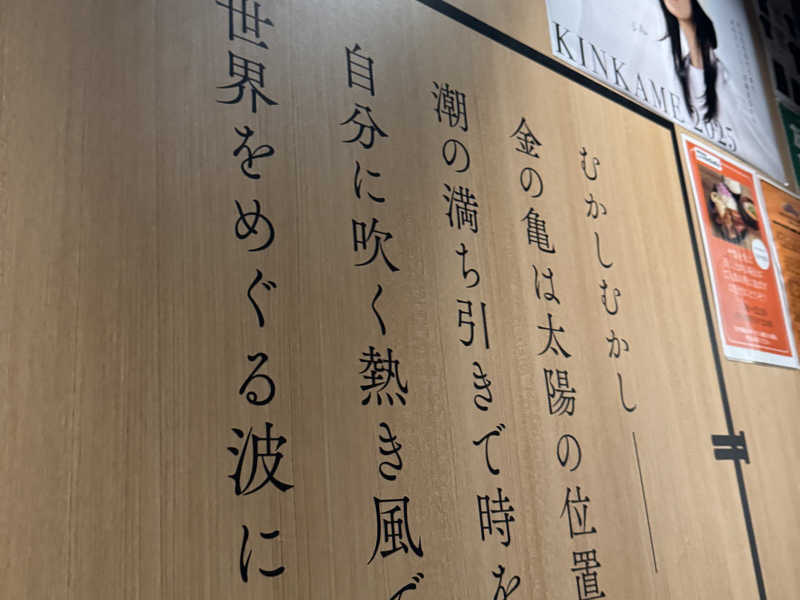 むかしむかし――
金の亀は太陽の位置
潮の満ち引きで時を
自分に吹く熱き風で
世界をめぐる波に
KINKAME 2025